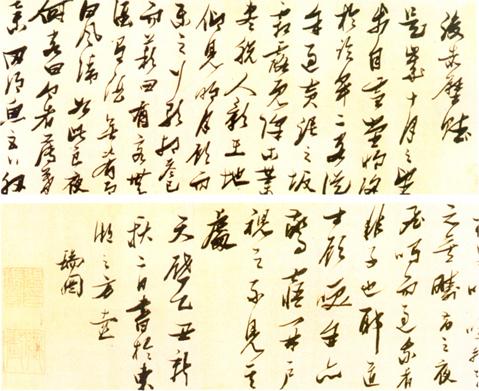 後赤壁賦
是歲十月之望
步自雪堂將歸
於臨皋二客從
予過黃泥之坂
霜露既降木葉
盡脫人影在地
仰見明月顧而
樂之行歌相答已
而歎曰有客無
酒有酒無肴月
白風清如此良夜
何客曰今者薄暮
舉網得魚巨口細
之矣疇昔之夜
飛鳴而過我者
非子也耶道
士顧笑予亦
驚寤開戶
視之不見其
處
天啟乙丑新
秋二日書於東
湖之方壺
瑞圖